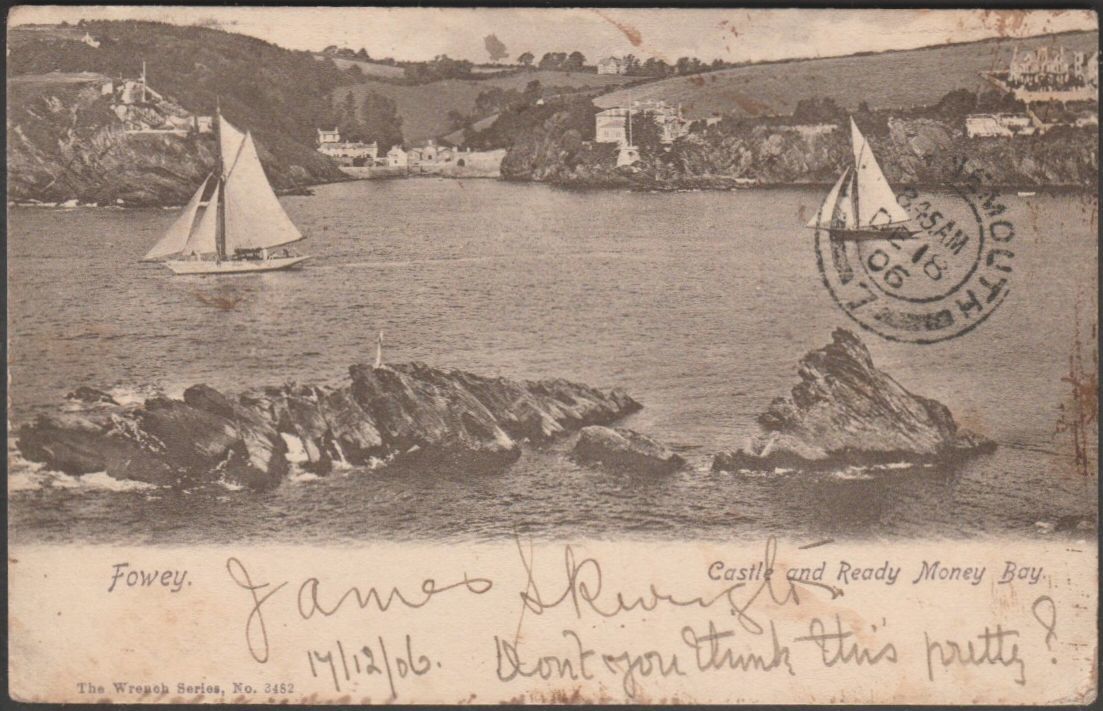 YEMOUTH
8 45 AM
DE 18
06
7
Fowey.
Castle and Ready Money Bay.
James Skewrighton
17/12/06. Don't you think this pretty?
The Wrench Series, No. 3482